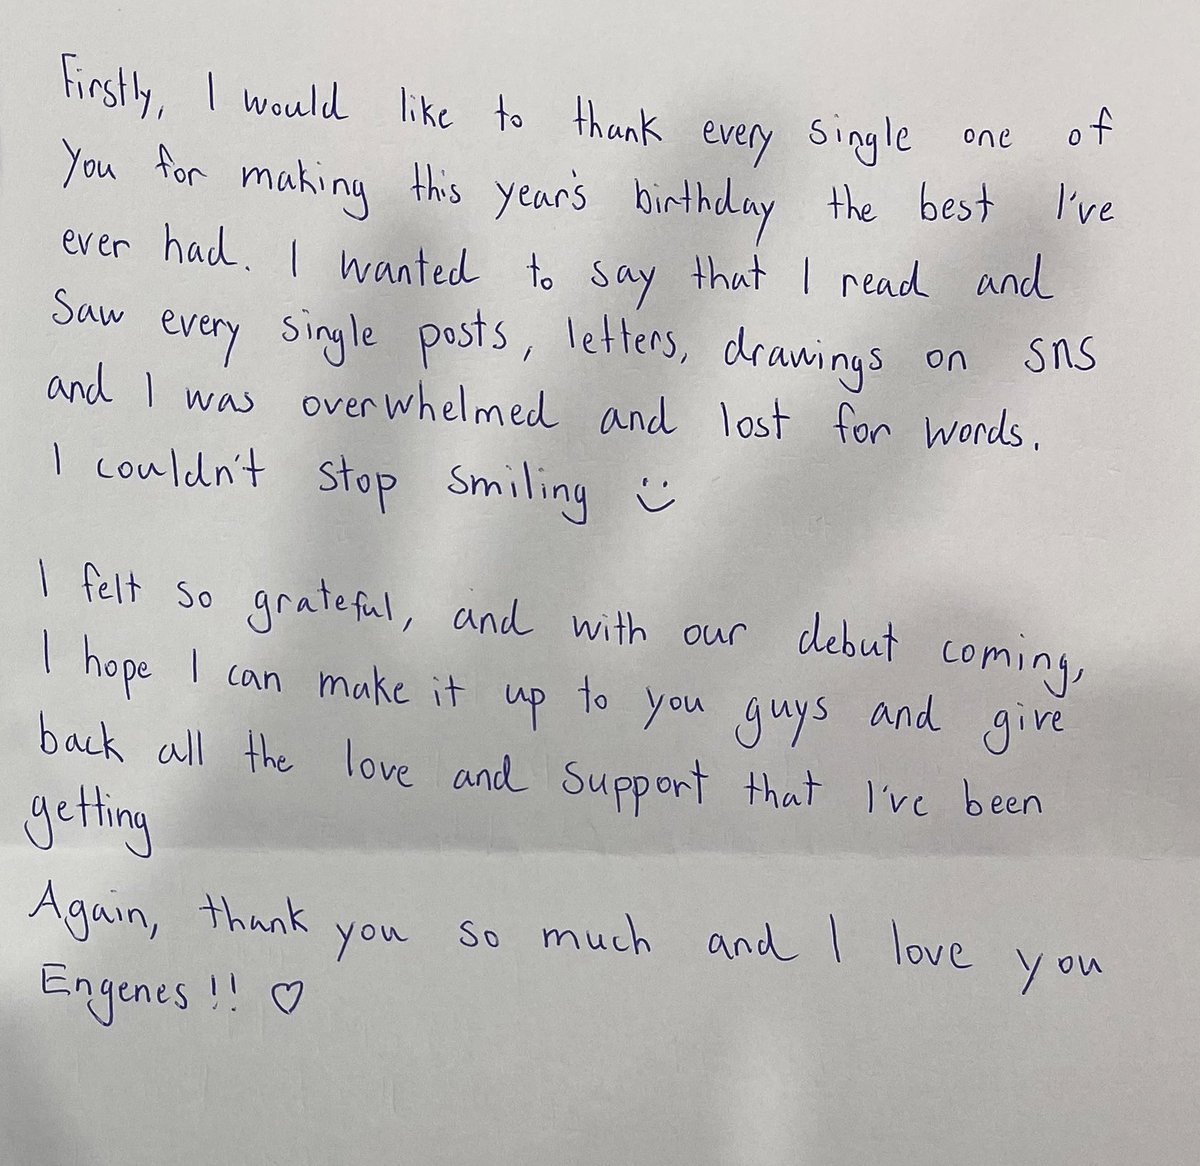 Firstly, I would like to thank every single one of
you for making this year's birthday the best I've
ever had. I wanted to say that I read and
saw every single posts, letters, drawings on sns
and I was overwhelmed and lost for words.
I couldn't stop smiling :)
I felt so grateful, and with our debut coming,
I hope I can make it up to you guys and give
back all the love and support that I've been
getting
Again, thank you so much and I love you
Engenes!! ♡